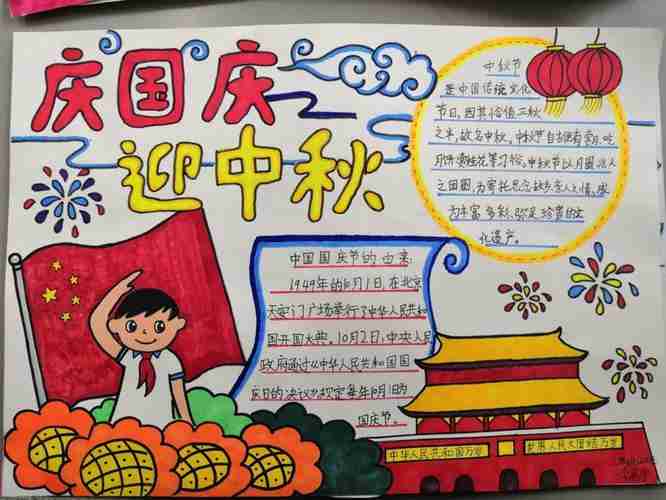 庆国庆
迎中秋
中秋节
是中国传统文化
节日,因其恰值三秋
之半,故名中秋。中秋节自古便有赏月、吃
月饼、赏桂花等习俗,中秋节以月圆兆人
之团圆,为寄托思念故乡,亲人之情,成
为丰富多彩、弥足珍贵的文
化遗产。
中国国庆节的由来:
1949年的10月1日,在北京
天安门广场举行了中华人民共和
国开国大典。10月2日,中央人民
政府通过《中华人民共和国国
庆日的决议》规定每年10月1日为
国庆节。
中华人民共和国万岁
世界人民大团结万岁